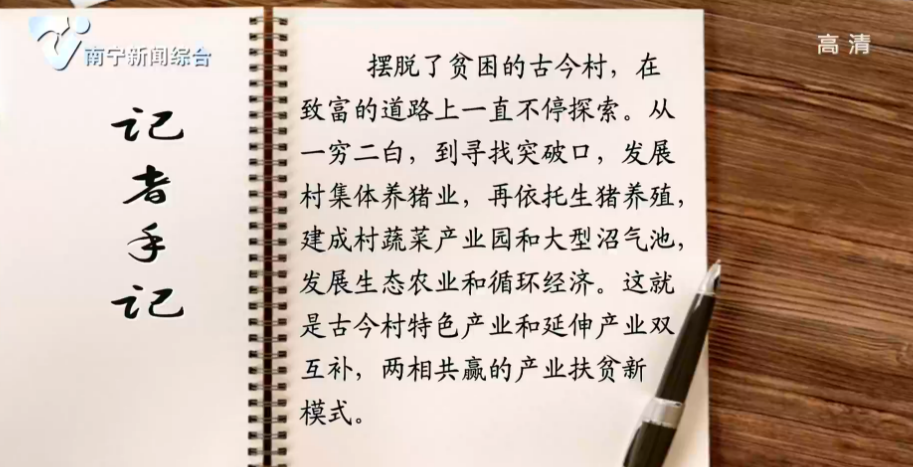 南宁新闻综合
高清
记者手记
摆脱了贫困的古今村，在
致富的道路上一直不停探索。从
一穷二白，到寻找突破口，发展
村集体养猪业，再依托生猪养殖，
建成村蔬菜产业园和大型沼气池，
发展生态农业和循环经济。这就
是古今村特色产业和延伸产业双
互补，两相共赢的产业扶贫新
模式。